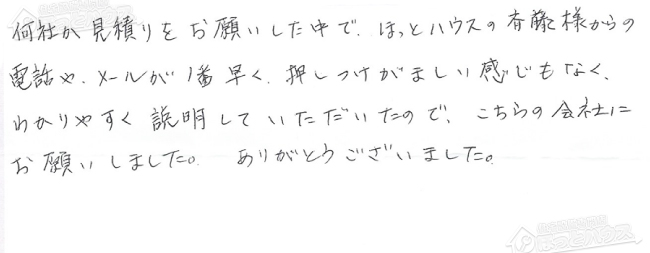 何社か見積りをお願いした中で、ほっとハウスの斉藤様からの
電話や、メールが1番早く、押しつけがましい感じもなく、
わかりやすく説明していただいたので、こちらの会社に
お願いしました。ありがとうございました。
ほっとハウス